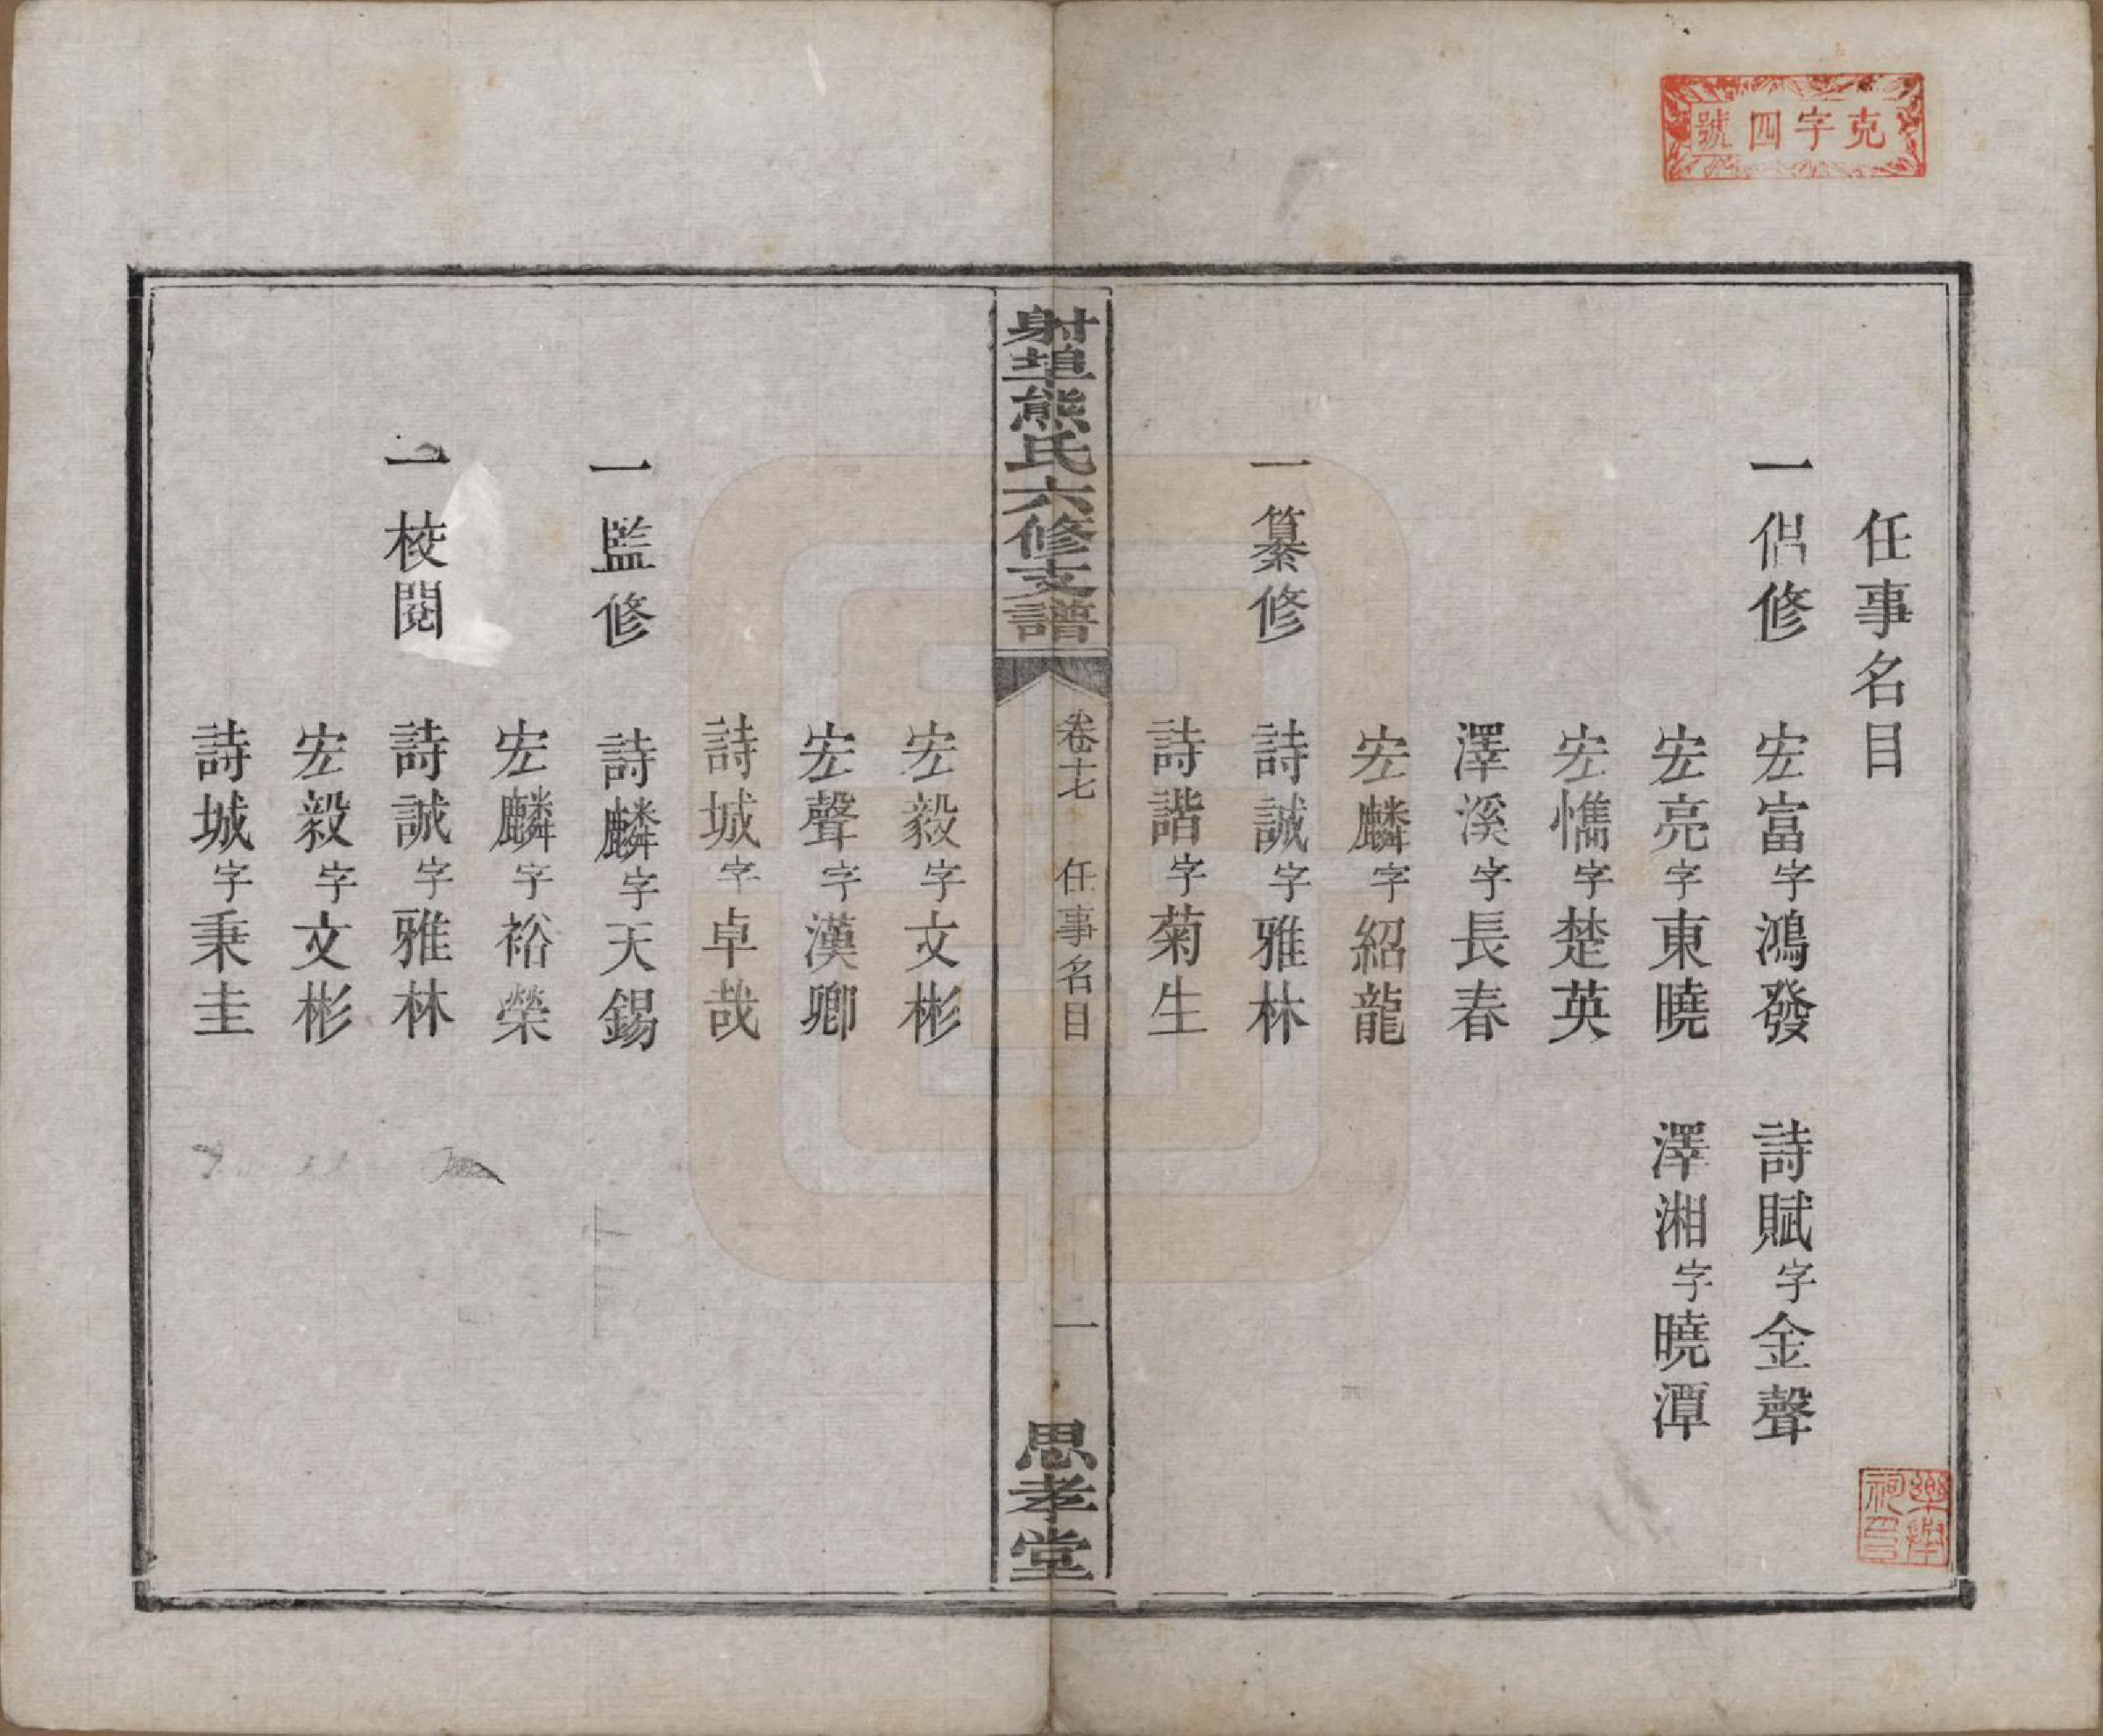 克字四號
任事名目
一侣修　宏富字鴻發　詩賦字金聲
宏亮字東曉　澤湘字曉潭
宏懏字楚英
澤溪字長春
宏麟字紹龍
一纂修　詩誠字雅林
詩諧字菊生
射埠熊氏六修支譜　卷十七　任事名目　一　思孝堂
宏毅字文彬
宏聲字漢卿
詩城字卓哉
一監修　詩麟字天錫
宏麟字裕榮
一校閱　詩誠字雅林
宏毅字文彬
詩城字秉圭